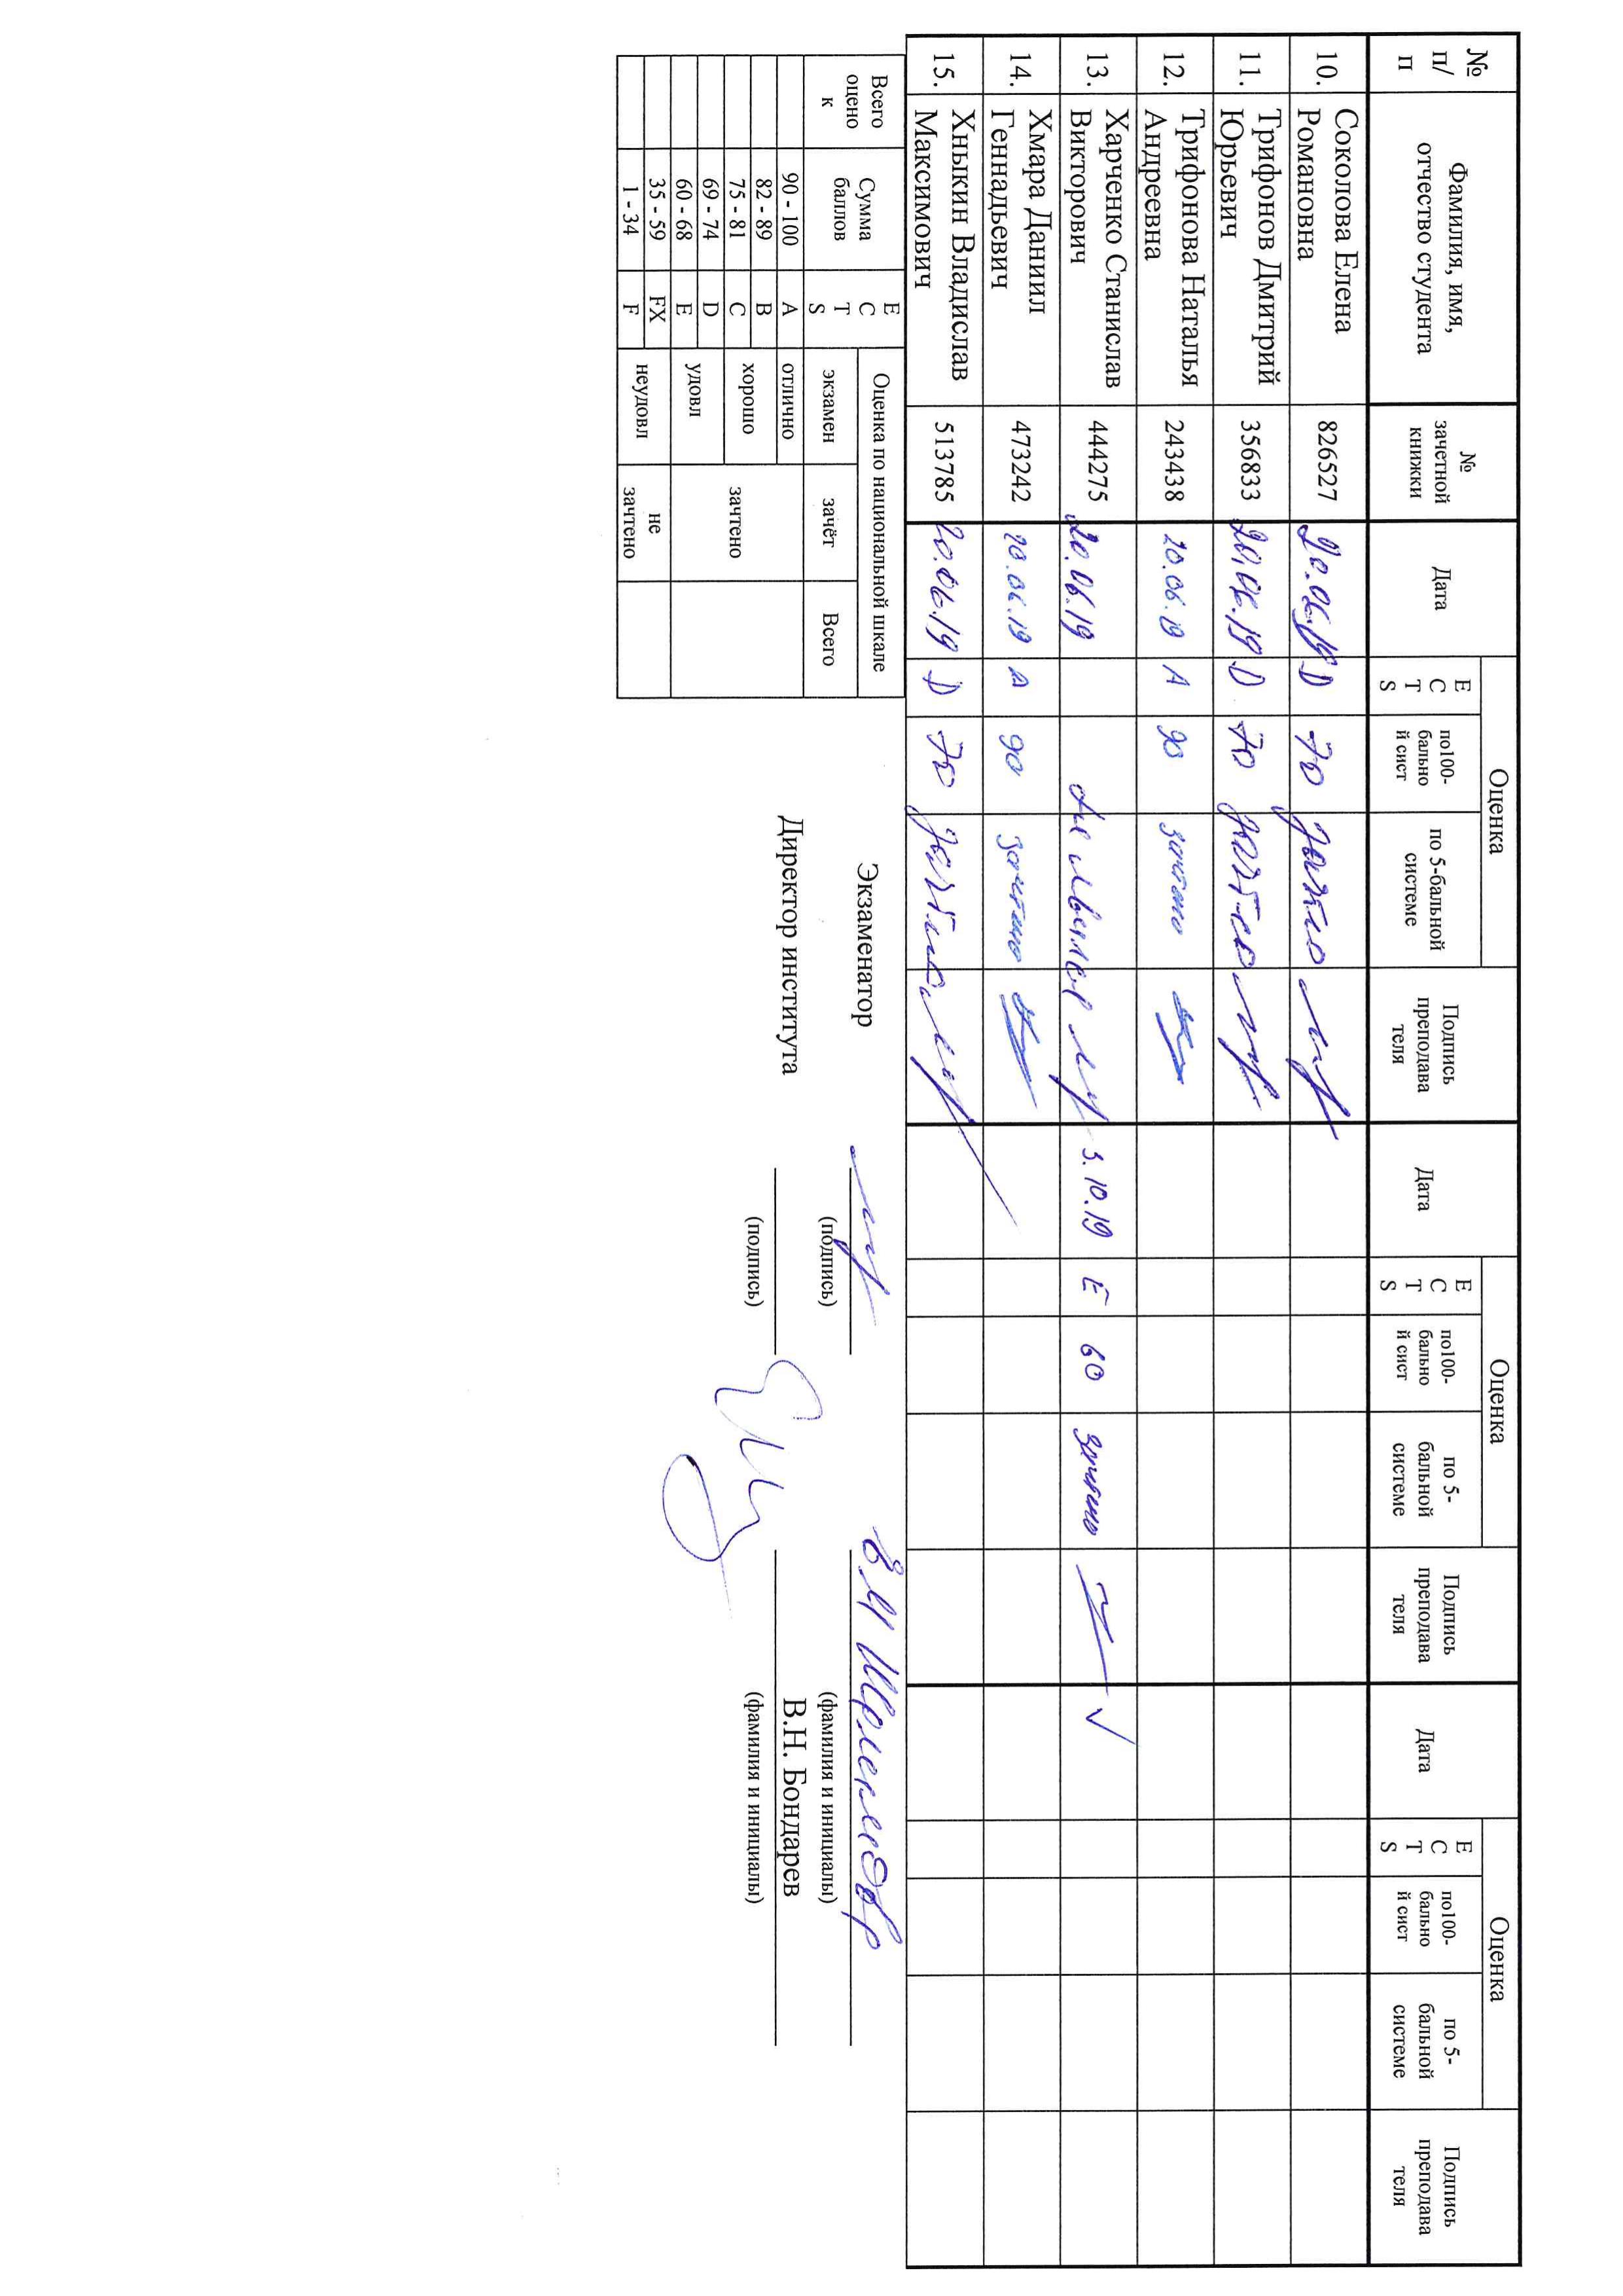 № п/п Фамилия, имя, отчество студента № зачетной книжки Дата Оценка Подпись преподавателя Дата Оценка Подпись преподавателя Дата Оценка Подпись преподавателя
ECTS по100-бальной сист по 5-бальной системе ECTS по100-бальной сист по 5-бальной системе ECTS по100-бальной сист по 5-бальной системе
10. Соколова Елена Романовна 826527 20.06.19 D 70 зачтено
11. Трифонов Дмитрий Юрьевич 356833 20.06.19 D 70 зачтено
12. Трифонова Наталья Андреевна 243438 20.06.19 A 90 зачтено
13. Харченко Станислав Викторович 444275 20.06.19 не явился 3.10.19 E 60 зачтено
14. Хмара Даниил Геннадьевич 473242 20.06.19 A 90 зачтено
15. Хныкин Владислав Максимович 513785 20.06.19 D 70 зачтено
Всего оценок Сумма баллов ECTS Оценка по национальной шкале
экзамен зачёт Всего
90 - 100 A отлично
82 - 89 B хорошо
75 - 81 C
зачтено
69 - 74 D удовл
60 - 68 E
35 - 59 FX неудовл не зачтено
1 - 34 F
Экзаменатор
(подпись) (фамилия и инициалы)
Директор института В.Н. Бондарев
(подпись) (фамилия и инициалы)